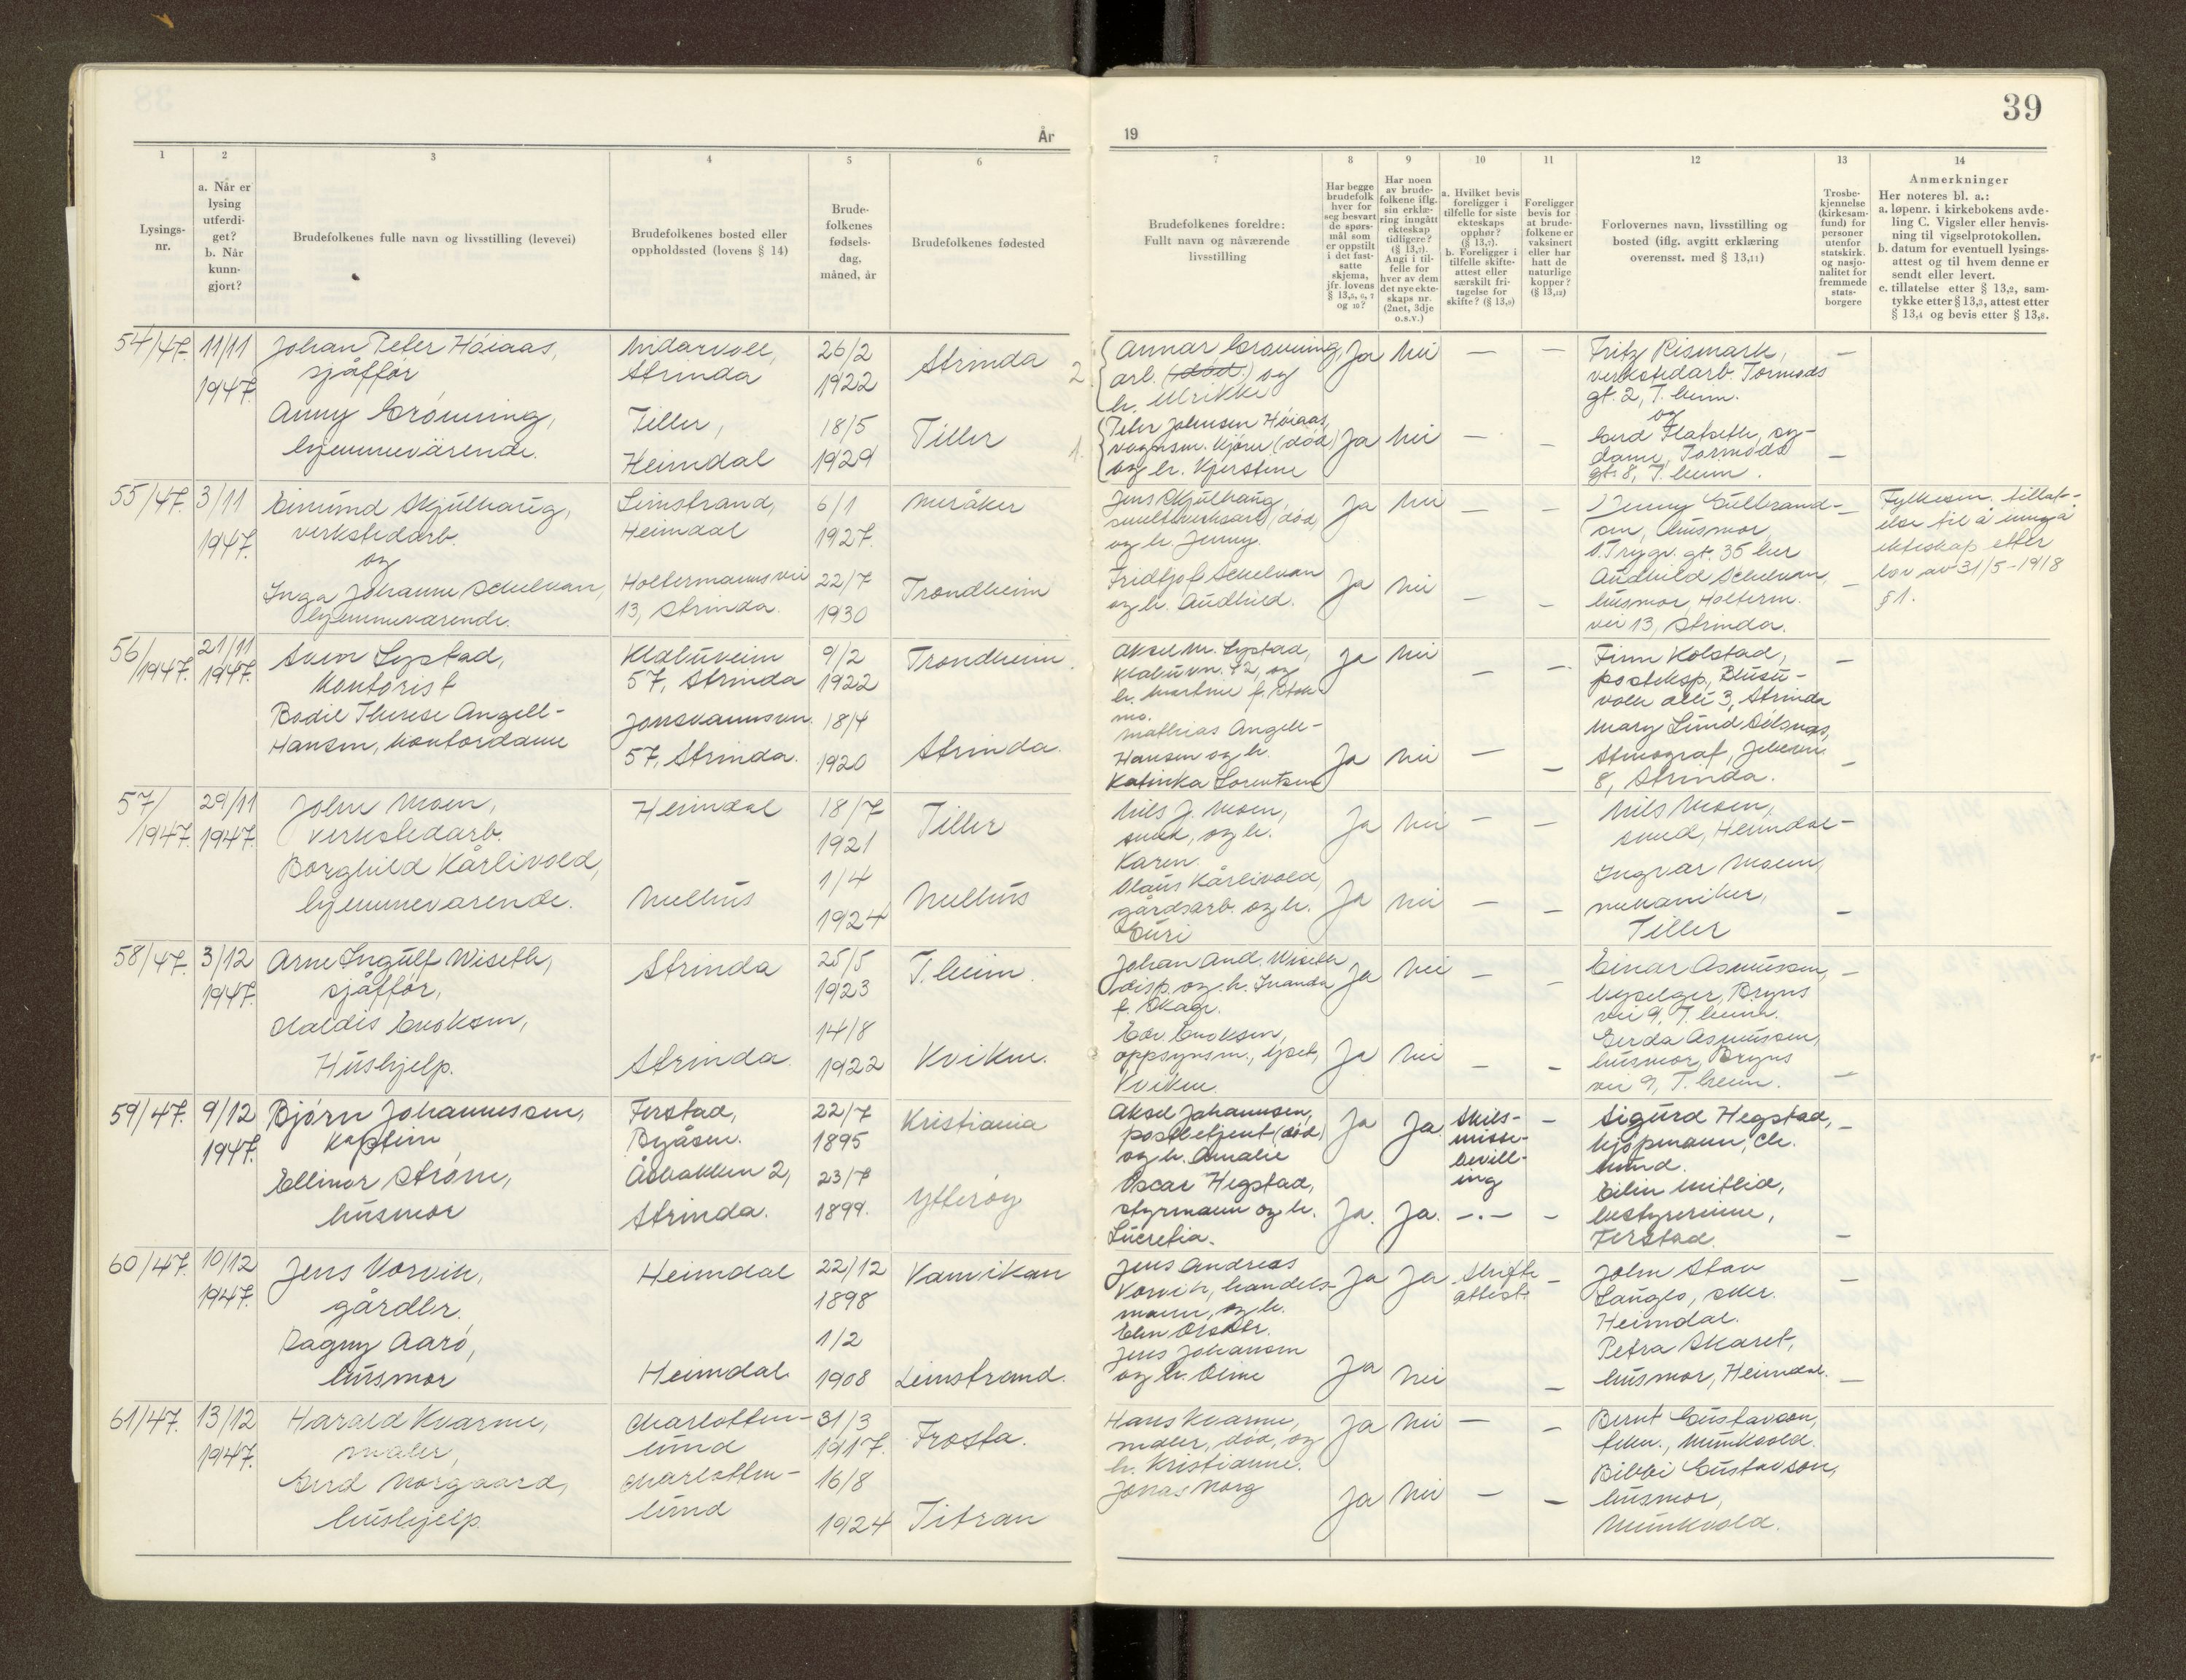 39
År
19
1
2
3
4
5
6
7
8
9
10
11
12
13
14
Lysings-
nr.
a. Når er
lysing
utferdi-
get?
b. Når
kunn-
gjort?
Brudefolkenes fulle navn og livsstilling (levevei)
Brudefolkenes bosted eller
oppholdssted (lovens § 14)
Brude-
folkenes
fødsels-
dag,
måned, år
Brudefolkenes fødested
Brudefolkenes foreldre:
Fullt navn og nåværende
livsstilling
Har begge
brudefolk
hver for
seg besvart
de spørs-
mål som
er oppstilt
i det fast-
satte
skjema,
jfr. lovens
§ 13,5, 6, 7
og 10?
Har noen
av brude-
folkene iflg.
sin erklæ-
ring inngått
ekteskap
tidligere?
(§ 13,7).
Angi i til-
felle for
hver av dem
det nye ekte-
skaps nr.
(2net, 3dje
o.s.v.)
a. Hvilket bevis
foreligger i
tilfelle for siste
ekteskaps
opphør?
(§ 13,7).
b. Foreligger i
tilfelle skifte-
attest eller
særskilt fri-
tagelse for
skifte? (§ 13,9)
Foreligger
bevis for
at brude-
folkene er
vaksinert
eller har
hatt de
naturlige
kopper?
(§ 13,12)
Forlovernes navn, livsstilling og
bosted (iflg. avgitt erklæring
overensst. med § 13,11)
Trosbe-
kjennelse
(kirkesam-
fund) for
personer
utenfor
statskirk.
og nasjo-
nalitet for
fremmede
stats-
borgere
Anmerkninger
Her noteres bl. a.:
a. løpenr. i kirkebokens avde-
ling C. Vigsler eller henvis-
ning til vigselprotokollen.
b. datum for eventuell lysings-
attest og til hvem denne er
sendt eller levert.
c. tillatelse etter § 13,2, sam-
tykke etter § 13,3, attest etter
§ 13,4 og bevis etter § 13,8.
54/47.
11/11
1947.
Johan Peter Höiaas,
sjåffør
Anny Grönning,
hjemmeværende.
Nidarvoll,
Strinda
Tiller,
Heimdal
26/2
1922
18/5
1929
Strinda
Tiller
2.
Annar Grønning,
arb. (død.) og
h. Ulrikke
1.
Peter Johnsen Höiaas,
vognm. kjører (død)
og h. Kjerstine
Ja Nei — —
Ja Nei — —
Fritz Rismark,
verkstedarb. Tormods
gt. 2, T.heim.
og
Gerd Flatseth, sy-
dame, Tormods
gt. 8, T.heim.
—
—
55/47.
3/11
1947.
Eimund Skjulhaug,
verkstedarb.
og
Inga Johanne Schelvan,
hjemmeværende.
Leinstrand,
Heimdal
Holtermannsvei
13, Strinda.
6/1
1927.
22/7
1930
Meråker
Trondheim
Jens Skjulhaug,
smelteverksarb. død,
og h. Jenny.
Fridtjof Schelvan
og h. Audhild.
Ja Nei — —
Ja Nei — —
Jenny Gulbrand-
sen, husmor,
O.Trygv. gt. 35 her
Audhild Schelvan,
husmor, Holterm.
vei 13, Strinda.
—
—
Fylkesm. tillat-
else til å inngå
ekteskap etter
lov av 31/5-1918
§ 1.
56/1947.
21/11
1947.
Sven Lystad,
Kontorist
Bodil Therese Angell-
Hansen, kontordame
Klæbuveien
57, Strinda
Jonsvannsvn.
57, Strinda.
9/2
1922
18/4
1920
Trondheim.
Strinda.
Aksel M. Lystad,
Klæbuvn. 42, og
h. Martine f. Stok-
mo.
Mathias Angell-
Hansen og h.
Katinka Lorentsen
Ja Nei — —
Ja Nei — —
Finn Kolstad,
posteksp.,
3, Strinda
Mary Lund
Stenograf,
8, Strinda.
—
—
57/1947.
29/11
1947.
John Moen,
verkstedarb.
Borghild Kårlivold,
hjemmeværende.
Heimdal
Melhus
18/7
1921
1/4
1924
Tiller
Melhus
Nils J. Moen,
smed, og h.
Karen.
Olaus Kårlivold,
gårdsarb. og h.
Guri
Ja Nei — —
Ja Nei — —
Nils Moen,
smed, Heimdal —
Ingvar Moen,
mekaniker,
Tiller
—
58/47.
3/12
1947.
Arne Ingulf Wiseth,
sjåffør,
Haldis Enoksen,
Hushjelp.
Strinda
Strinda.
25/5
1923
14/8
1922
T.heim.
Kvikne.
Johan And. Wiseth
disp. og h. Inanda
f. Skage.
Edv. Enoksen,
oppsynsm.,
Kvikne
Ja Nei — —
Ja Nei — —
Einar Asmussen,
Bryns
vei 9, T.heim.
Gerda Asmussen,
husmor, Bryns
vei 9, T.heim.
—
—
59/47.
9/12
1947.
Bjørn Johannessen,
kaptein
Ellinor Strøm,
husmor
Ferstad,
Byåsen.
Åsbakken 2,
Strinda.
22/7
1895
23/7
1899.
Kristiania
Ytterøy
Aksel Johannesen,
postbetjent (død)
og h. Amalie
Oscar Hegstad,
styrmann og h.
Lucretia.
Ja Ja Skils-
misse-
bevill-
ing —
Ja. Ja. —.— —
Sigurd Hegstad,
kjøpmann, Ch.
lund.
Eilin Mitlid,
bestyrerinne,
Ferstad.
—
—
60/47.
10/12
1947.
Jens Vorvik,
gårdbr.
Dagny Aarø,
husmor
Heimdal
Heimdal.
22/12
1898
1/2
1908
Vanvikan
Leinstrand.
Jens Andreas
Vorvik, handels-
mann, og h.
Elen Olsdtr.
Jens Johansen
og h. Oline
Ja Ja Skifte
attest. —
Ja Nei —
John Stav
Langlo,
Heimdal.
Petra Skaret,
husmor, Heimdal.
—
—
61/47.
13/12
1947.
Harald Kvarme,
maler,
Gerd Norgaard,
hushjelp.
Charlotten-
lund
Charlotten-
lund
31/3
1917.
16/8
1924
Frosta.
Titran
Hans Kvarme,
maler, død, og
h. Kristianne.
Jonas Norg
Ja Nei — —
Ja Nei — —
Bernt Gustavson,
Munkvold.
Bibbi Gustavson,
husmor,
Munkvold.